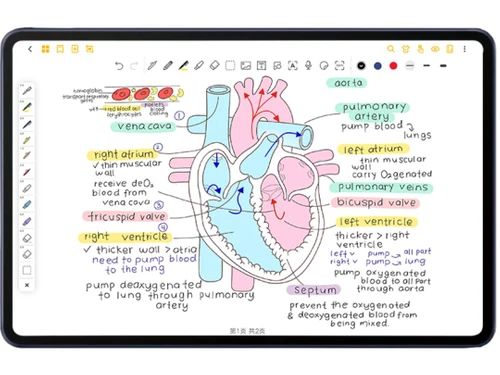 hemoglobin
transport respiratory
gases
red blood cell
erythrocytes
platelets
blood
clotting
① vena cava
②
right atrium
✓ thin muscular
wall
receive deO₂
blood from
vena cava
③
tricuspid valve
④
right ventricle
✓ thicker wall > atria
need to pump blood
to the lung
pump deoxygenated
to lung through pulmonary
artery
aorta
pulmonary
artery
pump blood
lungs
left atrium
thin muscular
wall
carry O₂genated
pulmonary veins
bicuspid valve
left ventricle
thicker > right
ventricle
left v pump → all part
right v pump → lung
pump oxygenated
blood to all part
through aorta
septum
prevent the oxygenated
& deoxygenated blood from
being mixed.
第1页 共2页